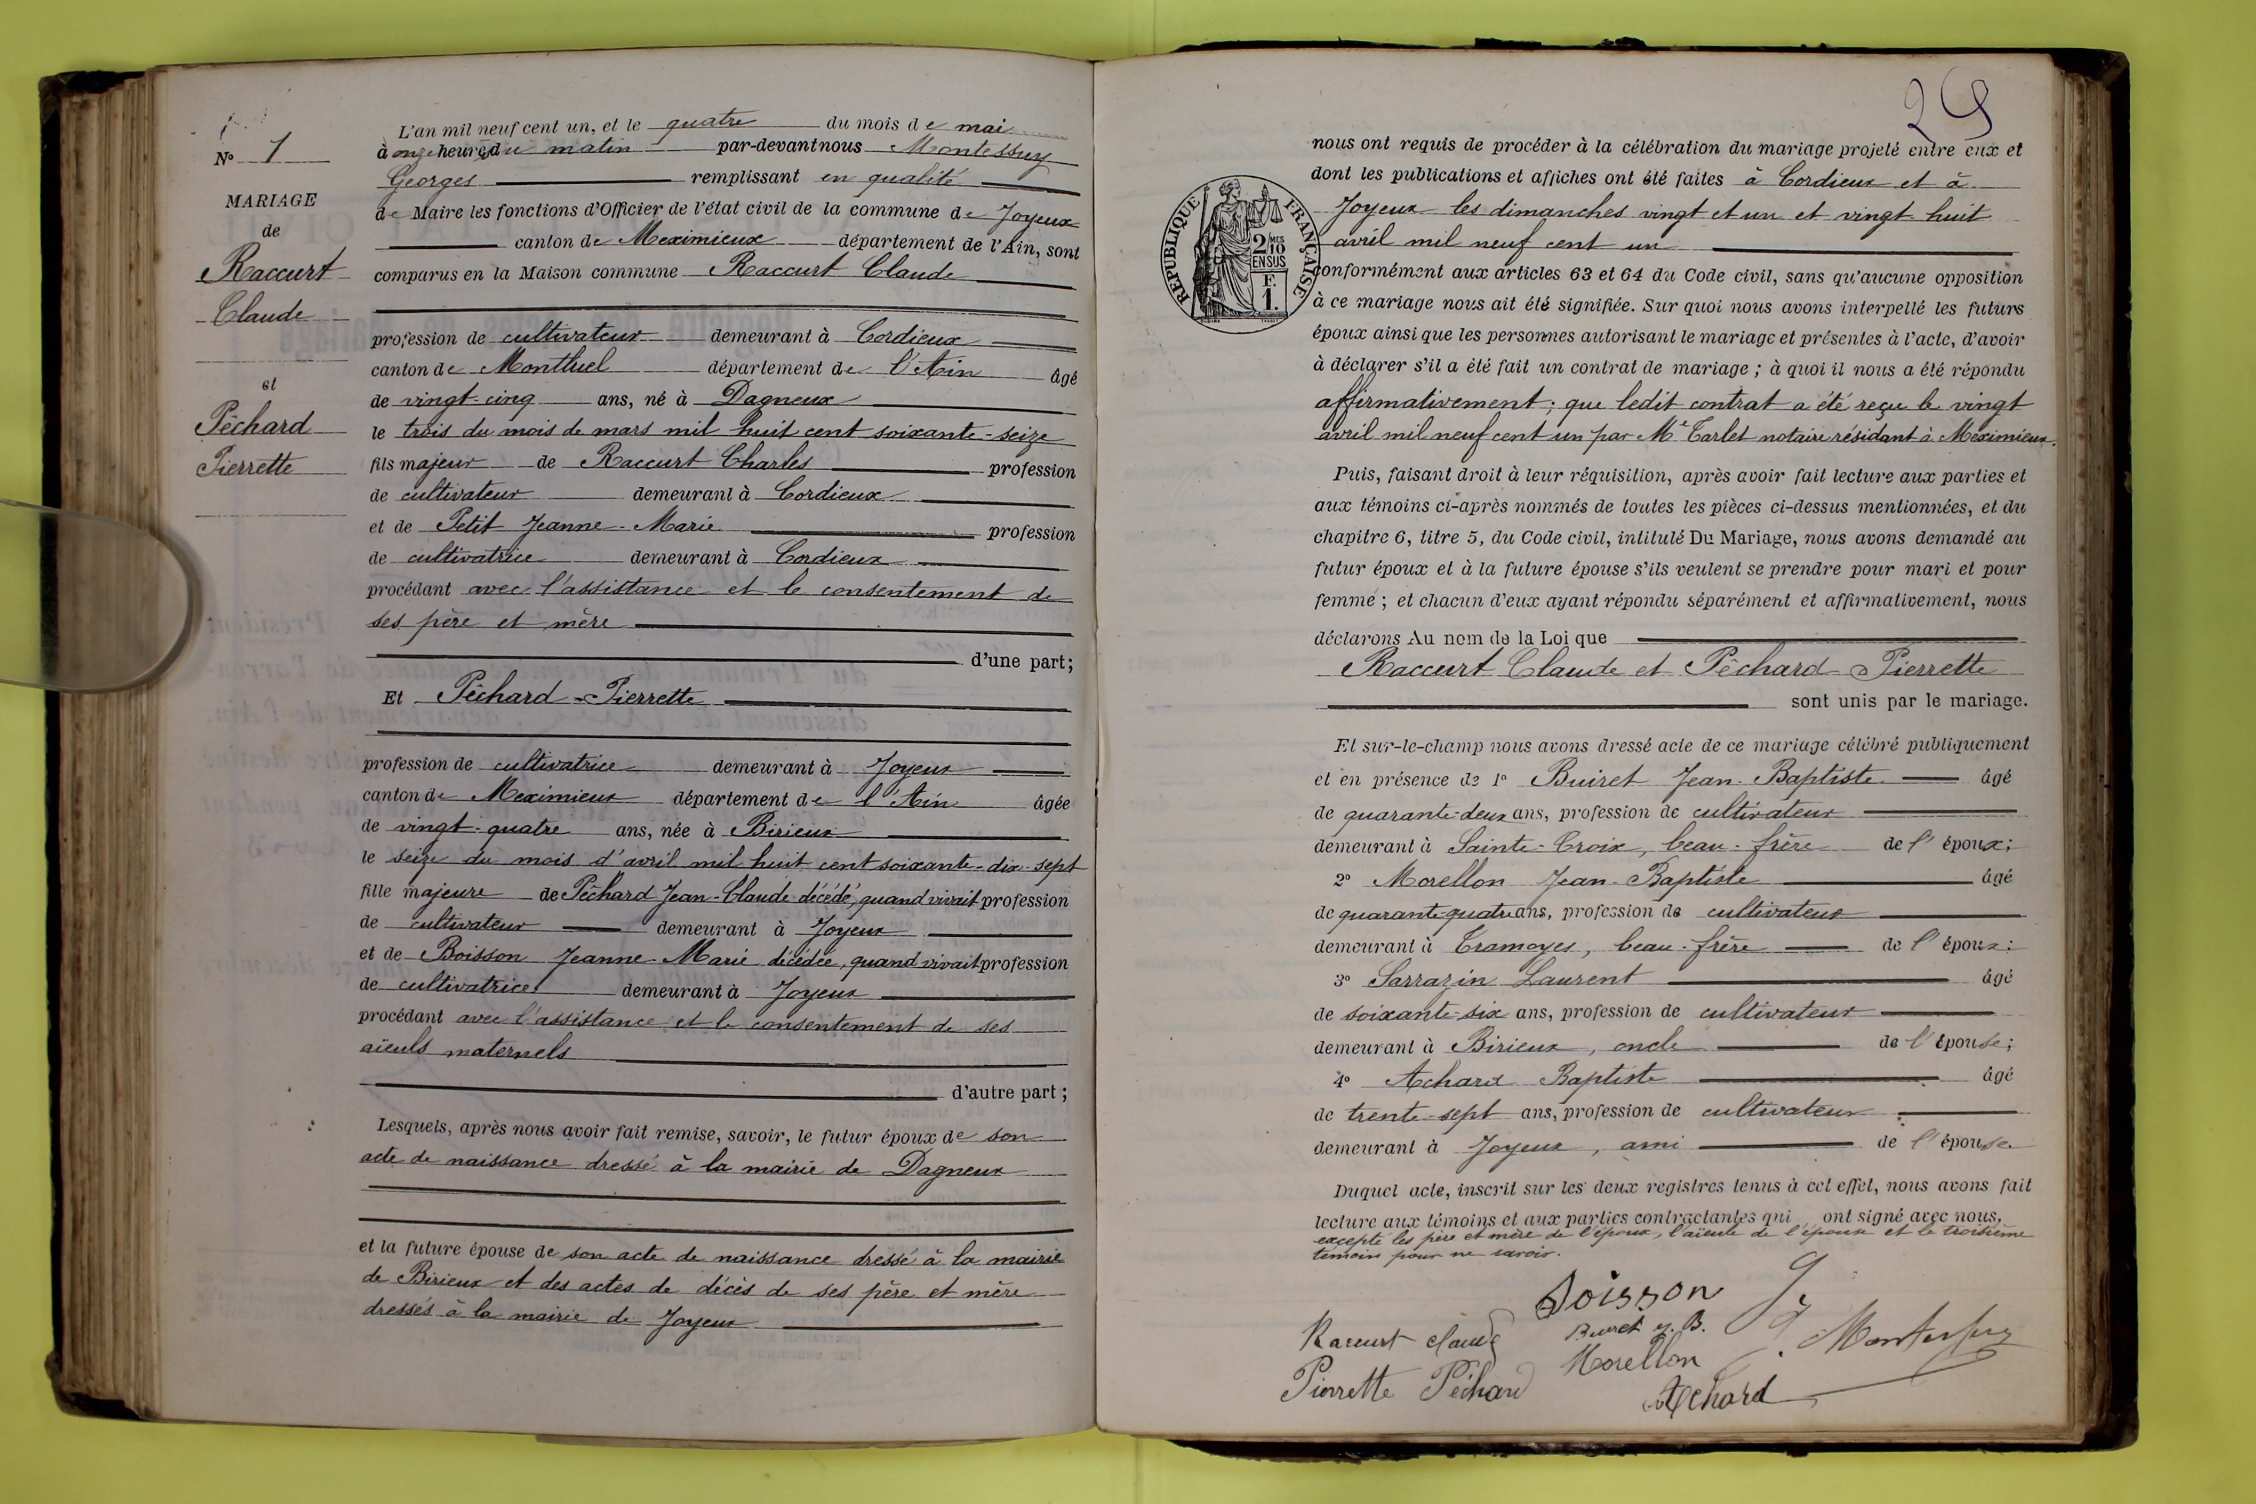 N° 1
MARIAGE
de
Raccurt
Claude
et
Péchard
Pierrette
L'an mil neuf cent un, et le quatre du mois de mai
à onze heures du matin par-devant nous Montessuy
Georges remplissant en qualité
de Maire les fonctions d'Officier de l'état civil de la commune de Joyeux
canton de Meximieux département de l'Ain, sont
comparus en la Maison commune Raccurt Claude
profession de cultivateur demeurant à Cordieux
canton de Montluel département de l'Ain âgé
de vingt-cinq ans, né à Dagneux
le trois du mois de mars mil huit cent soixante-seize
fils majeur de Raccurt Charles profession
de cultivateur demeurant à Cordieux
et de Petit Jeanne-Marie profession
de cultivatrice demeurant à Cordieux
procédant avec l'assistance et le consentement de
ses père et mère
d'une part;
Et Péchard Pierrette
profession de cultivatrice demeurant à Joyeux
canton de Meximieux département de l'Ain âgée
de vingt-quatre ans, née à Birieux
le seize du mois d'avril mil huit cent soixante-dix-sept
fille majeure de Péchard Jean-Claude décédé, quand vivait profession
de cultivateur demeurant à Joyeux
et de Boisson Jeanne-Marie décédée, quand vivait profession
de cultivatrice demeurant à Joyeux
procédant avec l'assistance et le consentement de ses
aïeuls maternels
d'autre part;
Lesquels, après nous avoir fait remise, savoir, le futur époux de son
acte de naissance dressé à la mairie de Dagneux
et la future épouse de son acte de naissance dressé à la mairie
de Birieux et des actes de décès de ses père et mère
dressés à la mairie de Joyeux
29
nous ont requis de procéder à la célébration du mariage projeté entre eux et
dont les publications et affiches ont été faites à Cordieux et à
Joyeux les dimanches vingt et un et vingt huit
avril mil neuf cent un
RÉPUBLIQUE FRANÇAISE
2/10 MES
EN SUS
F.
1.
conformément aux articles 63 et 64 du Code civil, sans qu'aucune opposition
à ce mariage nous ait été signifiée. Sur quoi nous avons interpellé les futurs
époux ainsi que les personnes autorisant le mariage et présentes à l'acte, d'avoir
à déclarer s'il a été fait un contrat de mariage; à quoi il nous a été répondu
affirmativement; que ledit contrat a été reçu le vingt
avril mil neuf cent un par Me Tarlet notaire résidant à Meximieux.
Puis, faisant droit à leur réquisition, après avoir fait lecture aux parties et
aux témoins ci-après nommés de toutes les pièces ci-dessus mentionnées, et du
chapitre 6, titre 5, du Code civil, intitulé Du Mariage, nous avons demandé au
futur époux et à la future épouse s'ils veulent se prendre pour mari et pour
femme; et chacun d'eux ayant répondu séparément et affirmativement, nous
déclarons Au nom de la Loi que
Raccurt Claude et Péchard Pierrette
sont unis par le mariage.
Et sur-le-champ nous avons dressé acte de ce mariage célébré publiquement
et en présence de 1° Buiret Jean-Baptiste âgé
de quarante-deux ans, profession de cultivateur
demeurant à Sainte-Croix, beau-frère de l'époux;
2° Morellon Jean-Baptiste âgé
de quarante-quatre ans, profession de cultivateur
demeurant à Tramoyes, beau-frère de l'époux;
3° Sarrazin Laurent âgé
de soixante-six ans, profession de cultivateur
demeurant à Birieux, oncle de l'épouse;
4° Achard Baptiste âgé
de trente-sept ans, profession de cultivateur
demeurant à Joyeux, ami de l'épouse.
Duquel acte, inscrit sur les deux registres tenus à cet effet, nous avons fait
lecture aux témoins et aux parties contractantes qui ont signé avec nous,
excepté les père et mère de l'époux, l'aïeule de l'épouse et le troisième
témoin pour ne savoir.
Boisson
Raccurt claude Buiret J. B. G. Montessuy
Pierrette Péchard Morellon
Achard